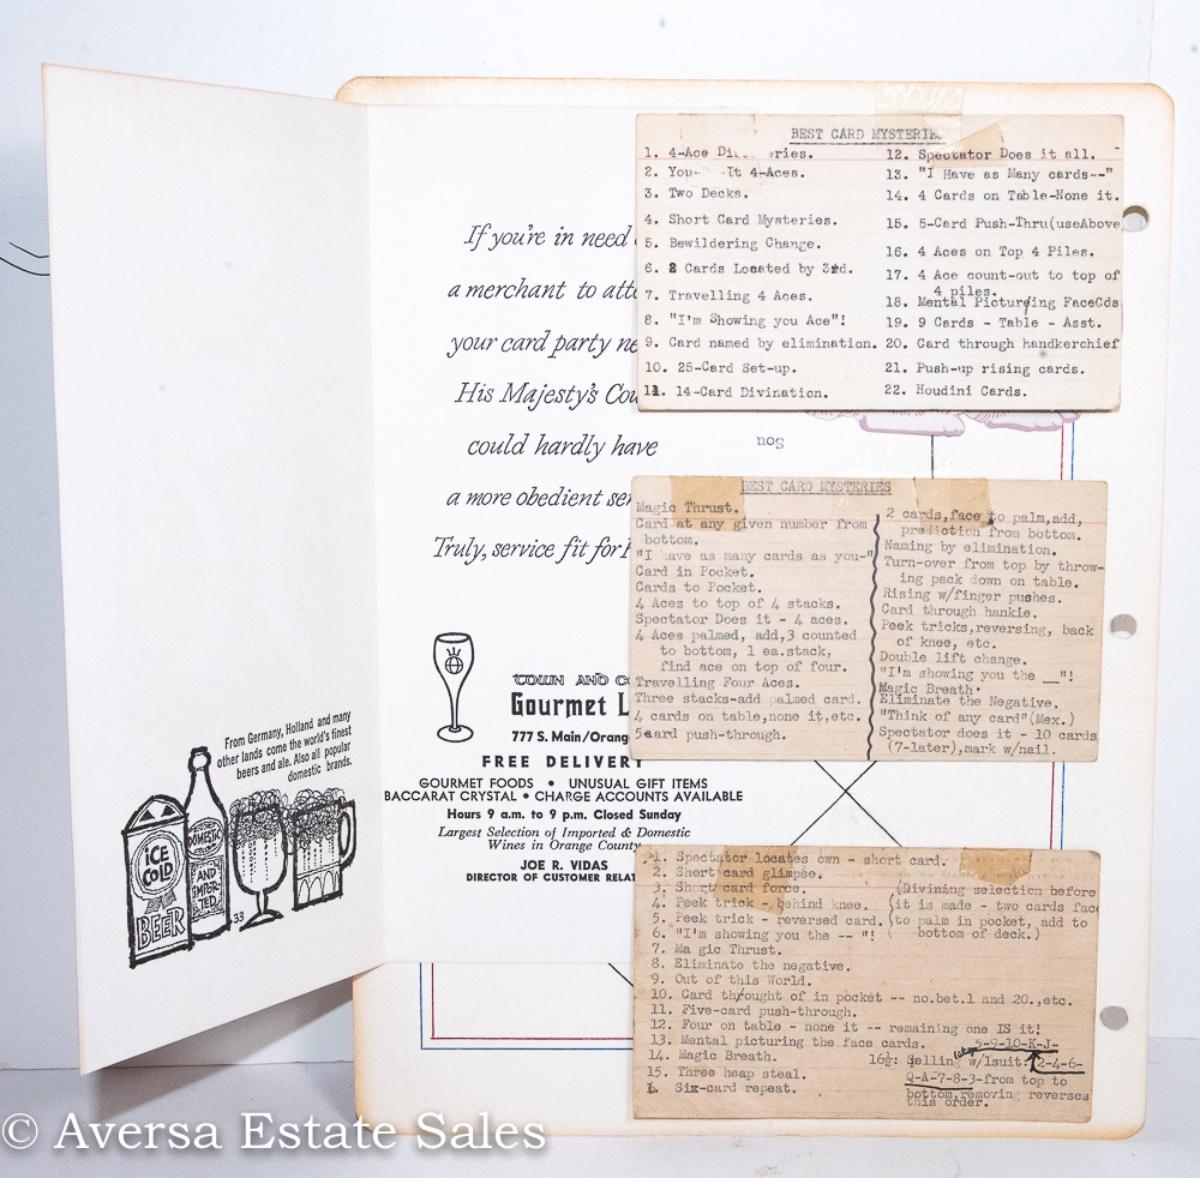 From Germany, Holland and many
other lands come the world's finest
beers and ale. Also all popular
domestic brands.
ICE
COLD
BEER
DOMESTIC
AND
IMPOR-
TED
33
If you're in need
a merchant to atte
your card party ne
His Majesty's Cou
could hardly have
a more obedient ser
Truly, service fit for
TOWN AND CO
Gourmet L
777 S. Main/Orang
FREE DELIVERY
GOURMET FOODS • UNUSUAL GIFT ITEMS
BACCARAT CRYSTAL • CHARGE ACCOUNTS AVAILABLE
Hours 9 a.m. to 9 p.m. Closed Sunday
Largest Selection of Imported & Domestic
Wines in Orange County
JOE R. VIDAS
DIRECTOR OF CUSTOMER RELAT
BEST CARD MYSTERIE
1. 4-Ace Di ries.
2. You- -It 4-Aces.
3. Two Decks.
4. Short Card Mysteries.
5. Bewildering Change.
6. 2 Cards Located by 3rd.
7. Travelling 4 Aces.
8. "I'm Showing you Ace"!
9. Card named by elimination.
10. 25-Card Set-up.
11. 14-Card Divination.
12. Spectator Does it all.
13. "I Have as Many cards--"
14. 4 Cards on Table-None it.
15. 5-Card Push-Thru(useAbove
16. 4 Aces on Top 4 Piles.
17. 4 Ace count-out to top of
4 piles.
18. Mental Picturing FaceCds
19. 9 Cards - Table - Asst.
20. Card through handkerchief
21. Push-up rising cards.
22. Houdini Cards.
Sou
BEST CARD MYSTERIES
Magic Thrust.
Card at any given number from
bottom.
"I have as many cards as you-"
Card in Pocket.
Cards to Pocket.
4 Aces to top of 4 stacks.
Spectator Does it - 4 aces.
4 Aces palmed, add,3 counted
to bottom, 1 ea.stack,
find ace on top of four.
Travelling Four Aces.
Three stacks-add palmed card.
4 cards on table,none it,etc.
5 card push-through.
2 cards,face to palm,add,
prediction from bottom.
Naming by elimination.
Turn-over from top by throw-
ing pack down on table.
Rising w/finger pushes.
Card through hankie.
Peek tricks,reversing, back
of knee, etc.
Double lift change.
"I'm showing you the __"!
Magic Breath.
Eliminate the Negative.
"Think of any card"(Mex.)
Spectator does it - 10 cards
(7-later),mark w/nail.
1. Spectator locates own - short card.
2. Short card glimpse.
3. Short card force.
4. Peek trick - behind knee.
5. Peek trick - reversed card.
6. "I'm showing you the -- "!
(Divining selection before
it is made - two cards face
to palm in pocket, add to
bottom of deck.)
7. Ma gic Thrust.
8. Eliminate the negative.
9. Out of this World.
10. Card thought of in pocket -- no.bet.1 and 20.,etc.
11. Five-card push-through.
12. Four on table - none it -- remaining one IS it!
13. Mental picturing the face cards.
14. Magic Breath.
15. Three heap steal.
16. Six-card repeat.
5-9-10-K-J-
16½: Spelling w/1suit: 2-4-6-
Q-A-7-8-3-from top to
bottom,removing reverses
this order.
© Aversa Estate Sales